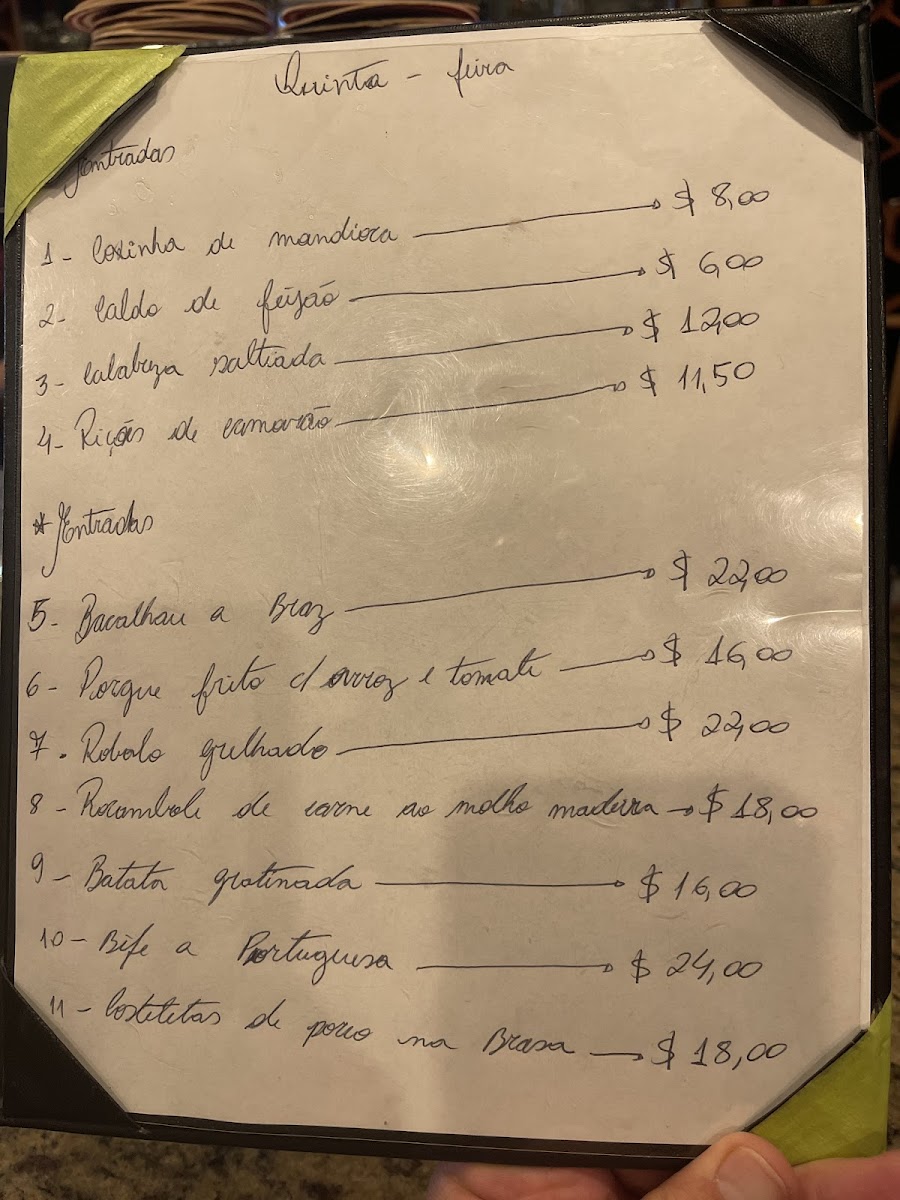 Quinta - feira
Entradas
1 - Coxinha de mandioca $ 8,00
2 - Caldo de feijão $ 6,00
3 - Calabreza saltiada $ 12,00
4 - Riçóis de camarão $ 11,50
* Entradas
5 - Bacalhau a Braz $ 22,00
6 - Porque frito c/ arroz e tomate $ 16,00
7 - Robalo grelhado $ 22,00
8 - Rocambole de carne ao molho madeira $ 18,00
9 - Batata gratinada $ 16,00
10 - Bife a Portuguesa $ 24,00
11 - Costeletas de porco na Brasa $ 18,00